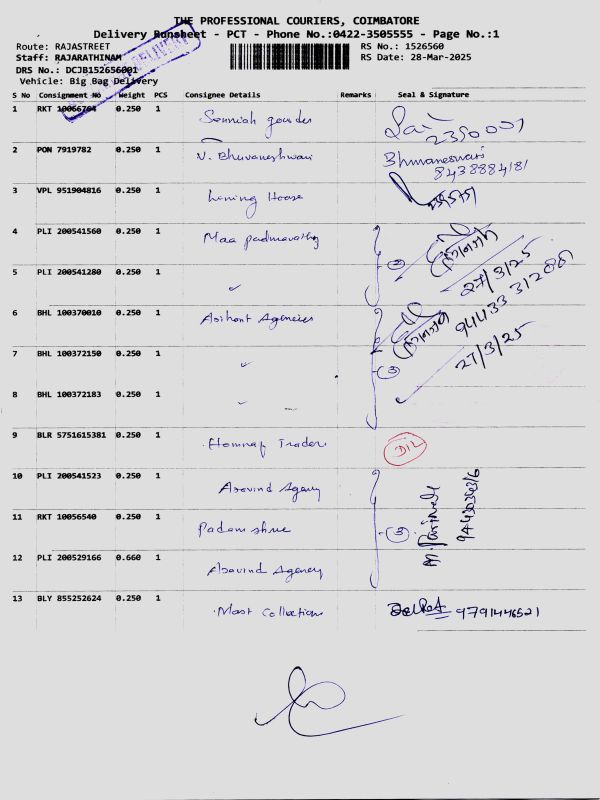 THE PROFESSIONAL COURIERS, COIMBATORE
Delivery Runsheet - PCT - Phone No.:0422-3505555 - Page No.:1
Route: RAJASTREET
RS No.: 1526560
Staff: RAJARATHINAM
RS Date: 28-Mar-2025
DRS No.: DCJB152656001
Vehicle: Big Bag Delivery
DELIVERY
S No Consignment No Weight PCS Consignee Details Remarks Seal & Signature
1 RKT 10066704 0.250 1 gounder 2390007
2 PON 7919782 0.250 1 V. Bhuvaneshwari Bhuvaneswari
8438884181
3 VPL 951904816 0.250 1 House
4 PLI 200541560 0.250 1 Maa padmavathy
5 PLI 200541280 0.250 1 (2) 27/3/25
94433 312881
6 BHL 100370010 0.250 1 Arihant Agencies
7 BHL 100372150 0.250 1 (3) 27/3/25
8 BHL 100372183 0.250 1
9 BLR 5751615381 0.250 1 Traders D/L
10 PLI 200541523 0.250 1 Aravind Agency
11 RKT 10056540 0.250 1 Padam shree (3)
12 PLI 200529166 0.660 1 Aravind Agency
13 BLY 855252624 0.250 1 Most Collection 9791446521